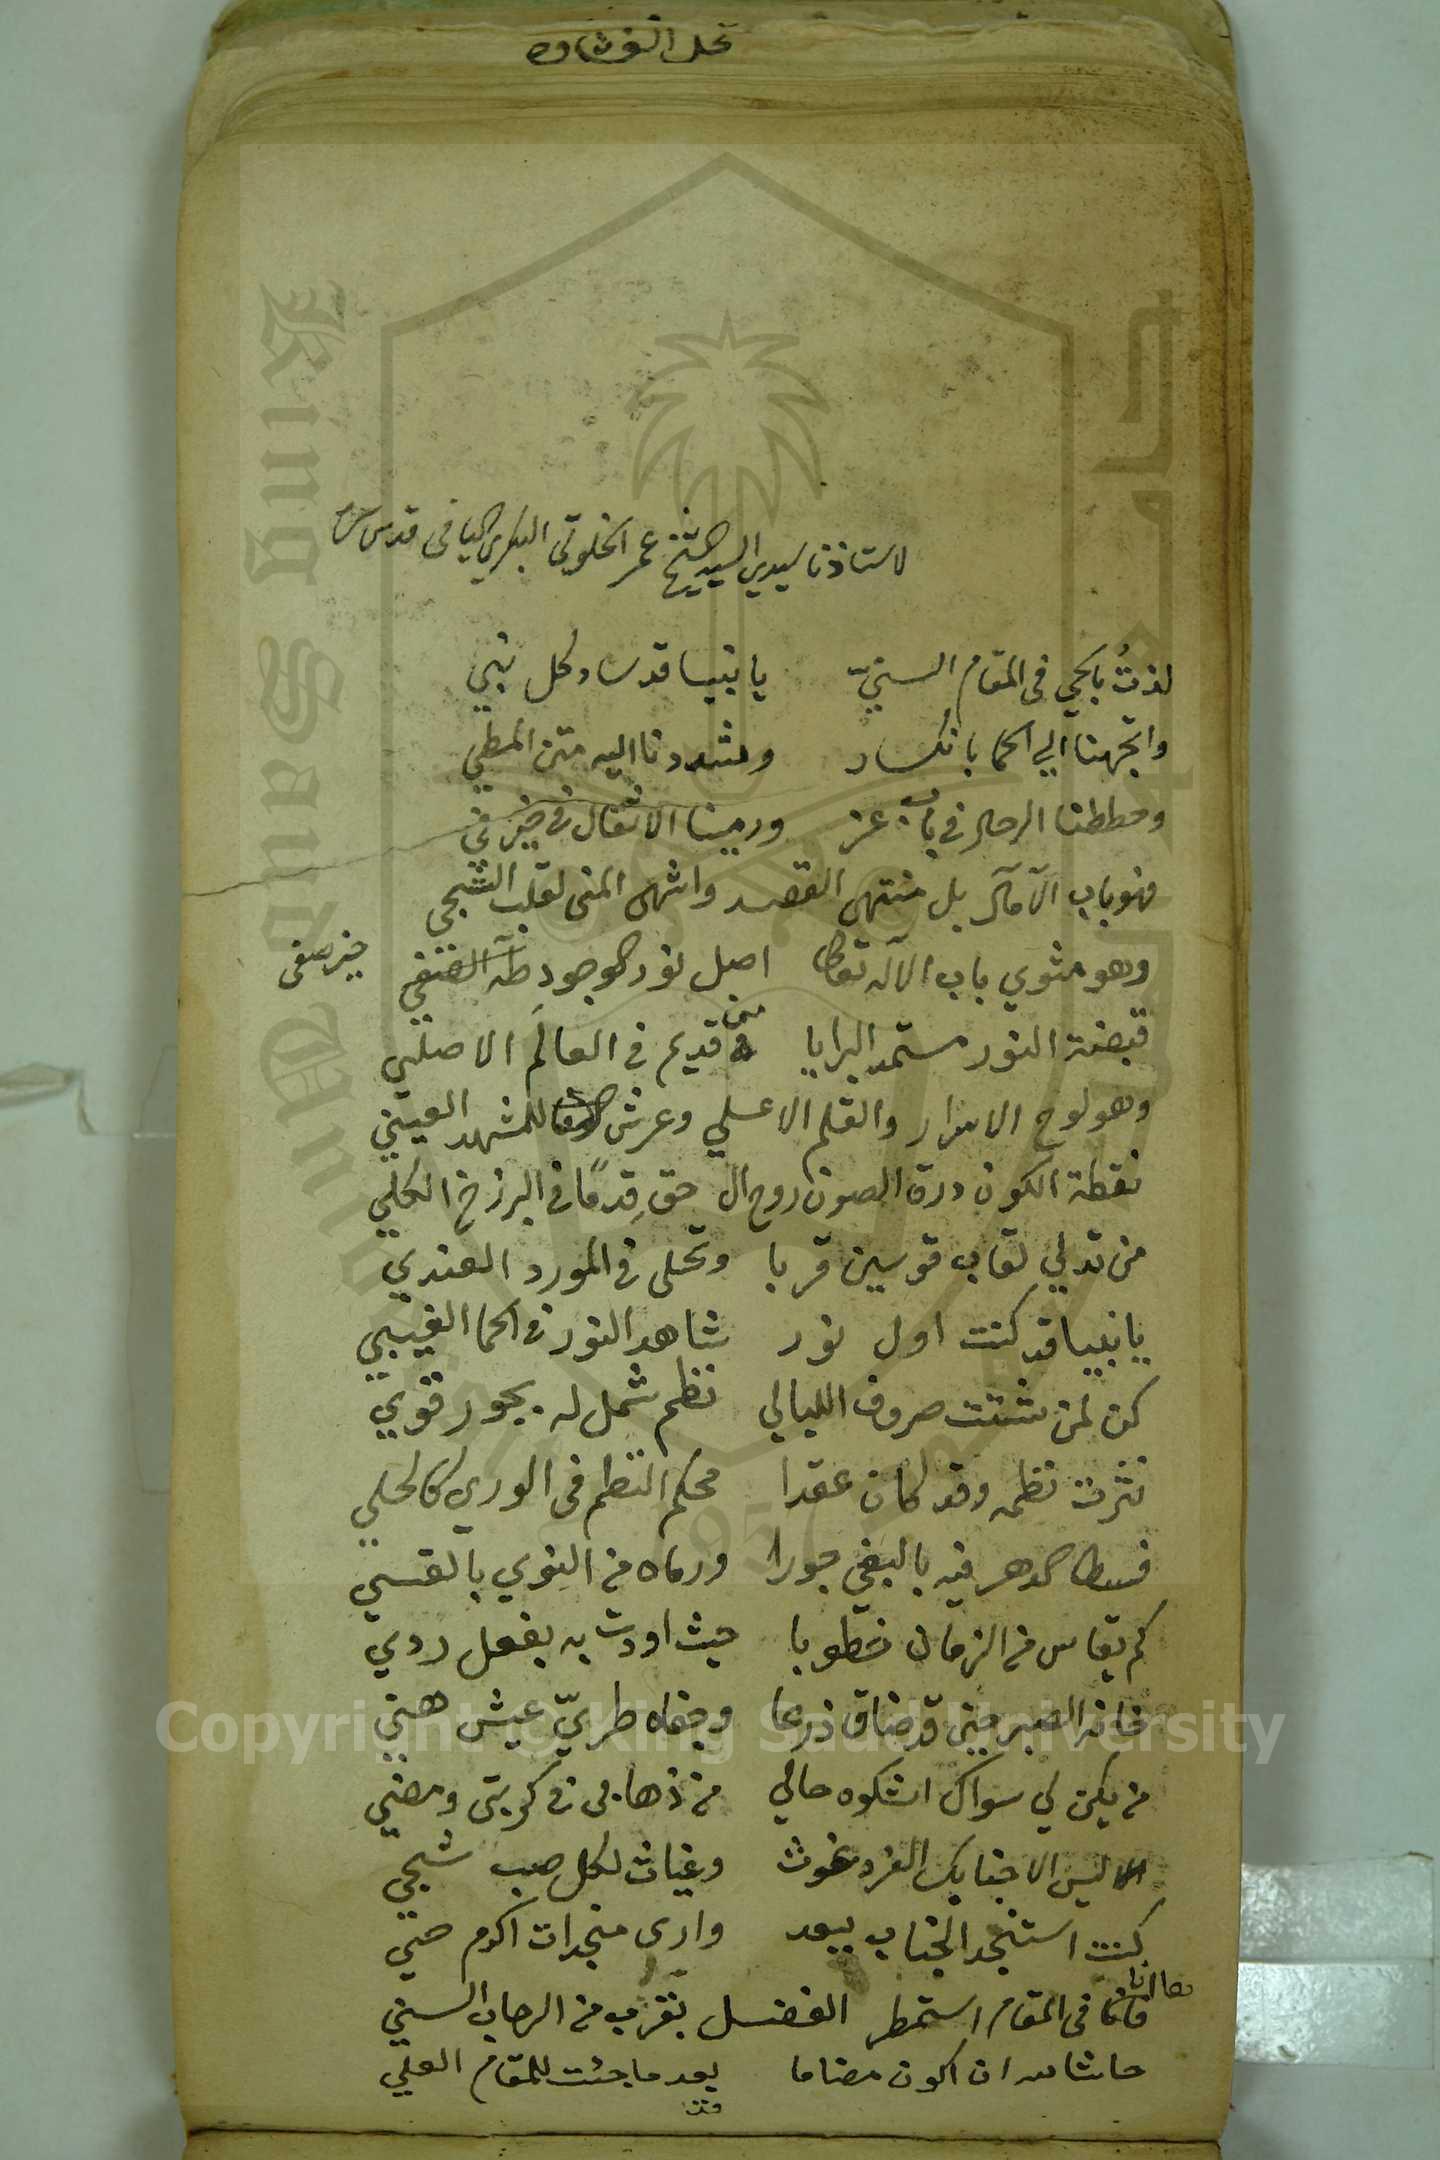 لاستاذنا سيدي السيد الشيخ عمر الخلوتي البكري اليافي قدس سره
لذتُ بالحي في المقام السنيّ يا نبيا قد ساد كل نبي
واتجهنا الي الحما بانكسار وشددنا اليه متن المطي
وحططنا الرحال في باب عز ورمينا الاثقال في خير في
فهو باب الآمال بل منتهى القصد واشهى المنى لقلب الشجي
وهو مثوي باب الآله تعالى اصل نور الوجود طه الصفي خير صفي
قبضة النور مستمد البرايا من قديم في العالَم الاصلي
وهو لوح الاسرار والقلم الاعلي وعرش للمشهد العيني
نقطة الكون درة الصون روح ال حق قِدمًا في البرزخ الكلي
من تدلي لقاب قوسين قربا وتحلى في المورد العندي
يا نبيا قد كنت اول نور شاهد النور في الحما الغيبي
كن لمن شتت صروف الليالي نظم شمل له بجور قوي
نثرت نظمه وقد كان عقدا محكم النظم في الوري كالحلي
فسطا الدهر فيه بالبغي جورا ورماه من النوي بالقسي
كم يقاس من الزمان خطوبا حيث اودت به بفعل ردي
خانه الصبر حين قد ضاق ذرعا وجفاه طريّ عيش هني
من يكن لي سواك اشكوه حالي من ذهابي في كربتي ومضي
ليس الا جنابك الفرد غوث وغياث لكل صب شجي
كنت استنجد الجناب ببعد وارى منجدات اكرم حي
ها انا في المقام استمطر الفضل بقرب من الرحاب السني
حاشا لله ان اكون مضاما بعد ما جئت للمقام العلي
Copyright © King Saud University
King Saud University
1957